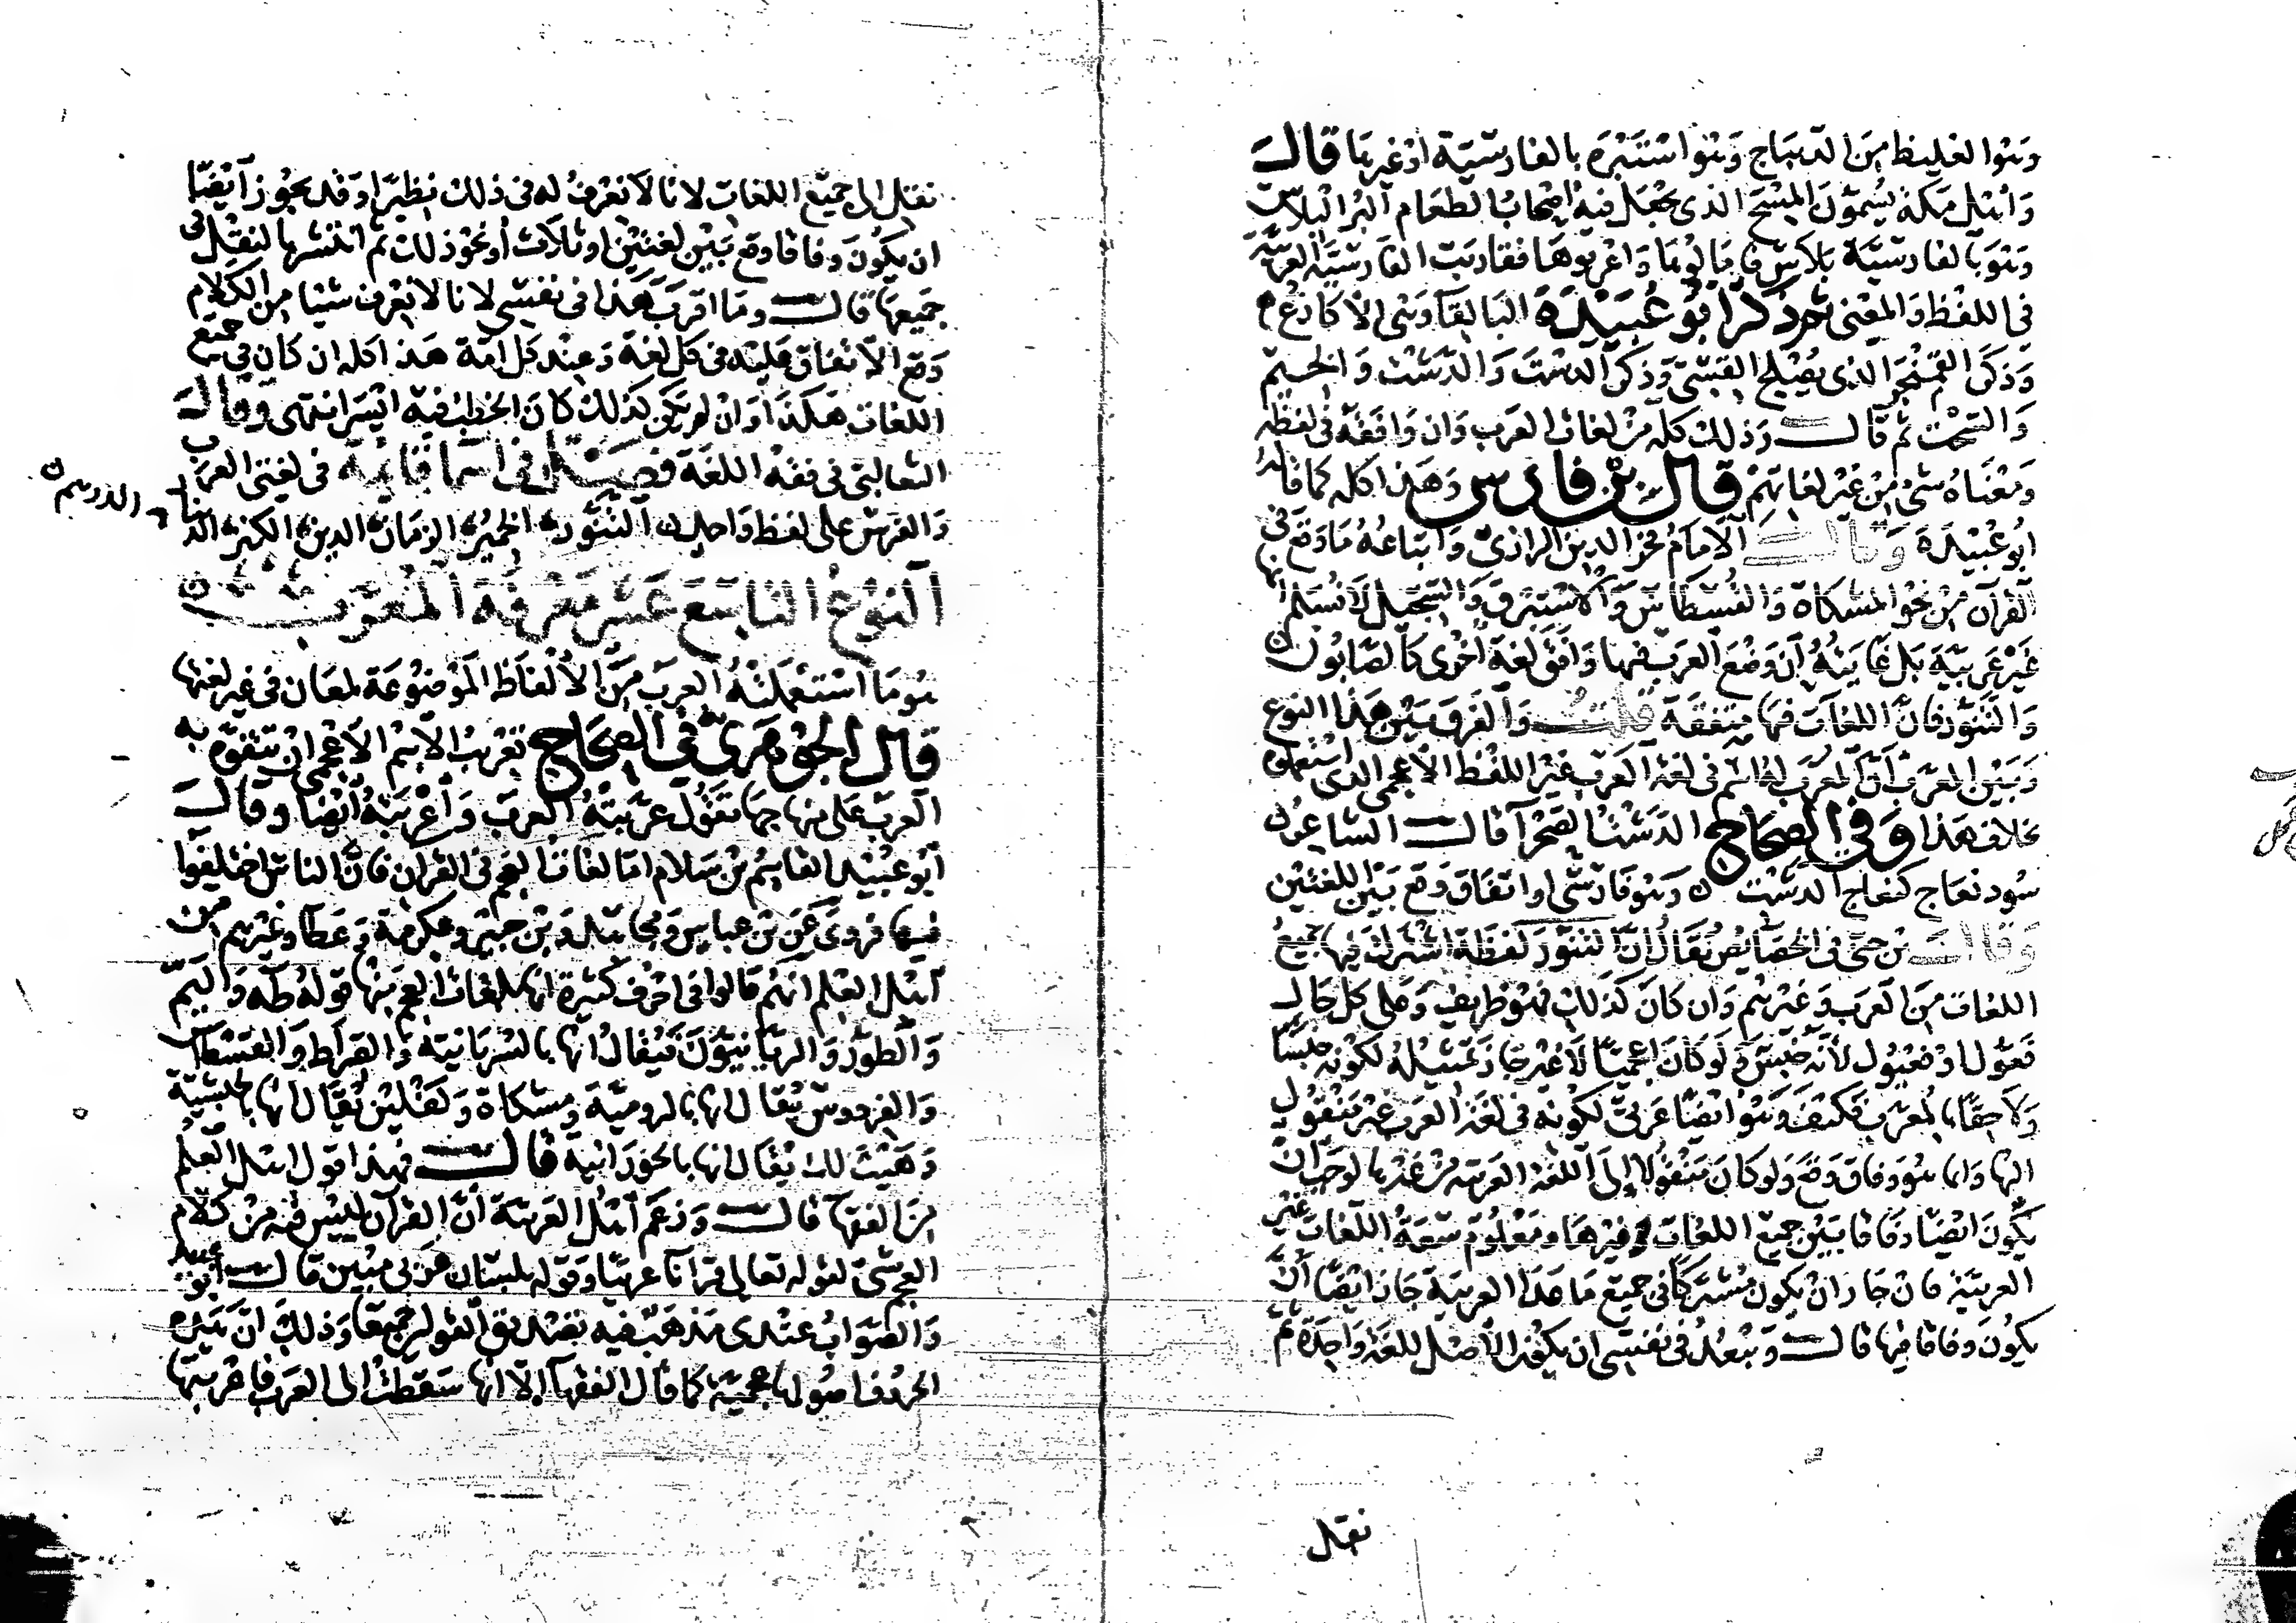 وهو الغليظ من الديباج وهو استبره بالفارسية او غيرها قال
وأهل مكة يسمون المسح الذى يجعل فيه اصحاب الطعام البر البلاس
وهو بالفارسية بلاس فامالوها واعربوها فقاربت الفارسية العربية
فى اللفظ والمعنى ثم ذكر ابو عبيدة البالغا وهى الاكارع
وذكر القمنجر الذى يصلح القسى وذكر الدست والدشت والخيم
والسخت ثم قال وذلك كله من لغات العرب وان وافقه فى لفظه
ومعناه شىء من غير لغاتهم قال بن فارس وهذا كله كما قاله
ابو عبيدة وقال الامام فخر الدين الرازى واتباعه ما وقع فى
القرآن من نحو المشكاة والقسطاس والاستبرق والسجيل لا نسلم انها
غير عربية بل غايته أن وضع العرب فيها وافق لغة اخرى كالصابون
والتنور فان اللغات فيها متفقة قلت والفرق بين هذا النوع
وبين المعرب أن المعرب له اسم فى لغة العرب غير اللفظ الاعجمى الذى استعملوه
بخلاف هذا وفي الصحاح الدشت الصحرآ قال الشاعر
سود نعاج كنعاج الدشت وهو فارسى او اتفاق وقع بين اللغتين
وقال بن جنى فى الخصايص يقال ان التنور لفظة اشترك فيها جميع
اللغات من العرب وغيرهم وان كان كذلك فهو ظريف وعلى كل حال
فعول او فعنول لأنه جنس ولو كان اعجميا لا غير جاز تمثيله لكونه جنسا
ولاحقا بالمعرب فكيف وهو ايضا عربى لكونه فى لغة العرب غير منقول
اليها وانما هو وفاق وقع ولو كان منقولا إلى اللغة العربية من غيرها لوجب ان
يكون ايضا وفاقا بين جميع اللغات غيرها ومعلوم سعة اللغات غير
العربية فان جاز ان يكون مشتركا فى جميع ما عدا العربية جاز ايضا ان
يكون وفاقا فيها قال ويبعد فى نفسى ان يكون الاصل للغة واحدة ثم
نقل
نقل الى جميع اللغات لانا لا نعرف له فى ذلك نظيرا وقد يجوز ايضا
ان يكون وفاقا وقع بين لغتين او ثلاث أو نحو ذلك ثم انتشر بالنقل فى
جميعها قال وما اقرب هذا فى نفسى لانا لا نعرف شيئا من الكلام
وقع الاتفاق عليه فى كل لغة وعند كل امة هذا كله ان كان فى جميع
اللغات هكذا وان لم يكن كذلك كان الخطب فيه ايسر انتهى وقال
الثعالبى فى فقه اللغة فصل فى اسما قايمة فى لغتى العرب
والفرس على لفظ واحد التنور الخمير الزمان الدين الكنز الد
ينار الدرهم
النوع التاسع عشر معرفة المعرب
هو ما استعملته العرب من الألفاظ الموضوعة لمعان فى غير لغتها
قال الجوهرى في الصحاح تعريب الاسم الاعجمى ان تتفوه به
العرب على منهاجها تقول عربته العرب وأعربته أيضا وقال
ابو عبيد القاسم بن سلام اما لغات العجم فى القران فان الناس اختلفوا
فيها فروى عن بن عباس ومجاهد وبن جبير وعكرمة وعطا وغيرهم من
اهل العلم انهم قالوا فى احرف كثيرة انها بلغات العجم منها قوله طه واليم
والطور والربانيون فيقال انها بالسريانية والصراط والقسطاس
والفردوس يقال انها بالرومية ومشكاة وكفلين يقال انها بالحبشية
وهيت لك يقال انها بالحورانية قال فهذا قول اهل العلم
من الفقها قال وزعم اهل العربية أن القرآن ليس فيه من كلام
العجم شىء لقوله تعالى قرآنا عربيا وقوله بلسان عربى مبين قال أبو عبيد
والصواب عندى مذهب فيه تصديق القولين جميعا وذلك ان هذه
الحروف اصولها عجمية كما قال الفقهآ إلا انها سقطت الى العرب فاعربتها